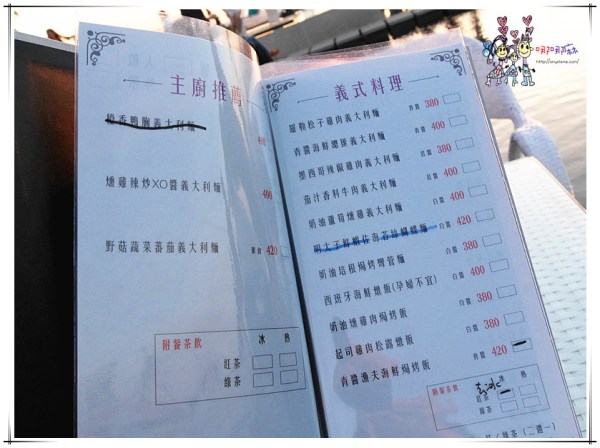 主廚推薦
香鴨胸義大利麵
燻雞辣炒XO醬義大利麵 400
野菇蔬菜蕃茄義大利麵 素食 420
附餐茶飲 冰 熱
紅茶
綠茶
義式料理
羅勒松子雞肉義大利麵 青醬 380
青醬海鮮螺旋義大利麵 青醬 400
墨西哥辣椒雞肉義大利麵 紅醬 380
茄汁香料牛肉義大利麵 紅醬 400
奶油蘆筍燻雞義大利麵 白醬 400
明太子鮮蝦佐海苔絲蝴蝶麵 白醬 420
奶油培根焗烤彎管麵 白醬 380
西班牙海鮮燉飯(孕婦不宜) 白醬 400
奶油燻雞肉焗烤飯 白醬 380
起司雞肉松露燉飯 白醬 380
青醬漁夫海鮮焗烤飯 青醬 420
附餐茶飲 熱
紅茶
綠茶
綠茶 (二選一)